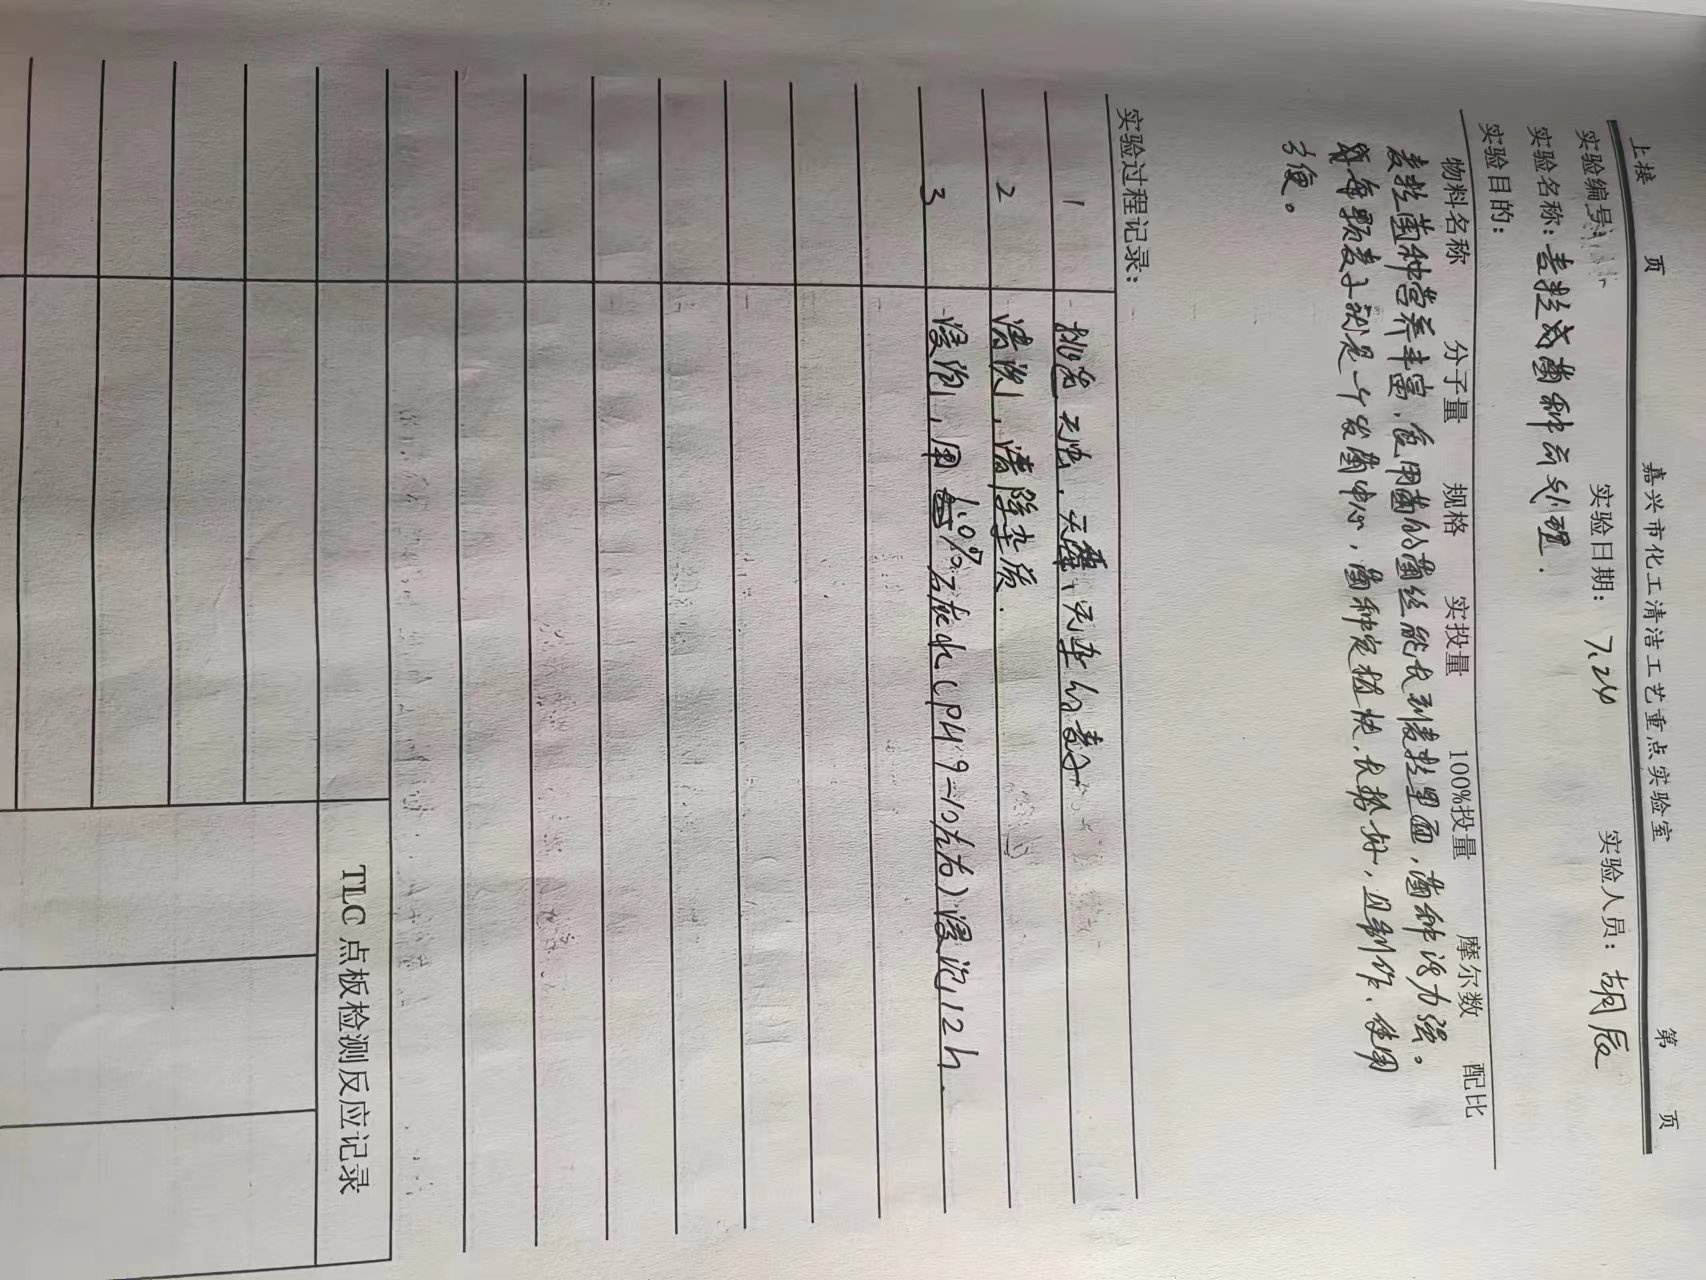 上接 页 嘉兴市化工清洁工艺重点实验室 第 页
实验编号: 实验日期: 7.24 实验人员: 胡辰
实验名称: 麦粒菌种预处理.
实验目的:
物料名称 分子量 规格 实投量 100%投量 摩尔数 配比
麦粒菌种营养丰富,食用菌的菌丝能长到麦粒里面,菌种活力强。
每颗麦子就是一个发菌中心,菌种定植快,长势好,且制作、使用
方便。
实验过程记录:
1 挑选无虫、无霉、无杂的麦子
2 清洗,清除杂质.
3 浸泡,用1.0%石灰水(PH 9-10左右)浸泡12h.
TLC 点板检测反应记录